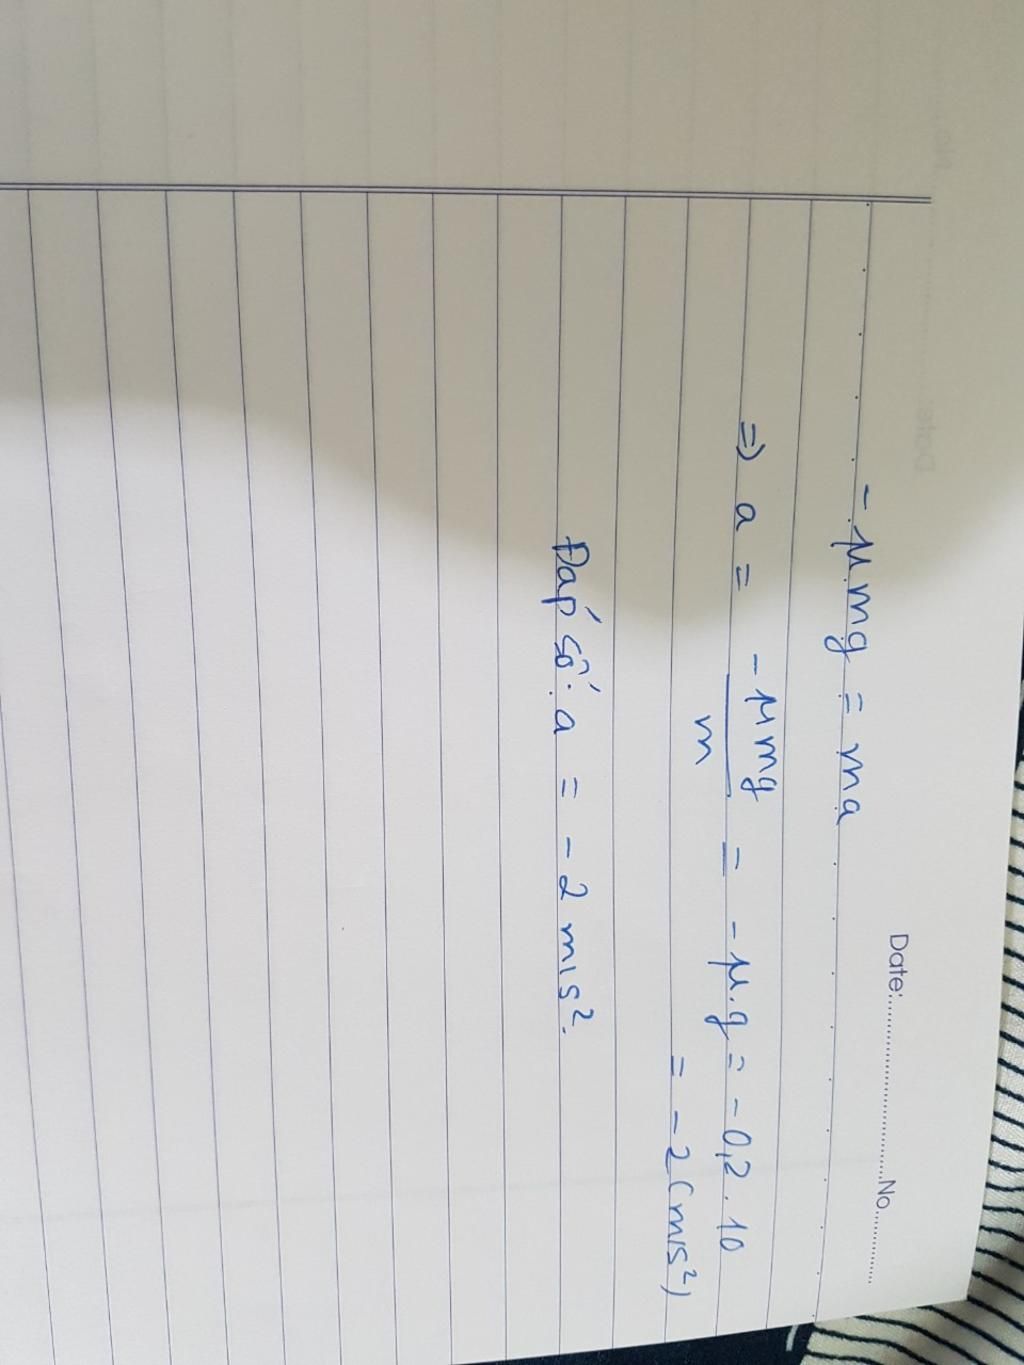 Date:.....................No..........
- μmg = ma
=) a = -μmg/m = -μ.g = -0,2.10
= -2(m/s²)
Đáp số: a = -2 m/s².